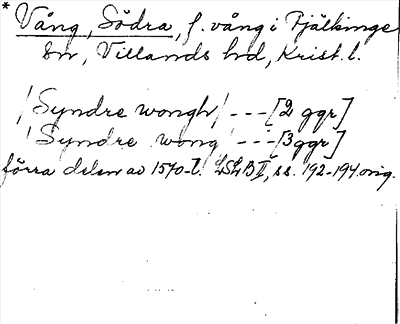 * Vång, Södra, f. vång i Fjälkinge
sn, Villands hd, Krist. l.
/Syndre wongh/ --- [2 ggr]
/Syndre wong/ --- [3 ggr]
förra delen av 1570-t. LSLB II, ss. 192-194. orig.